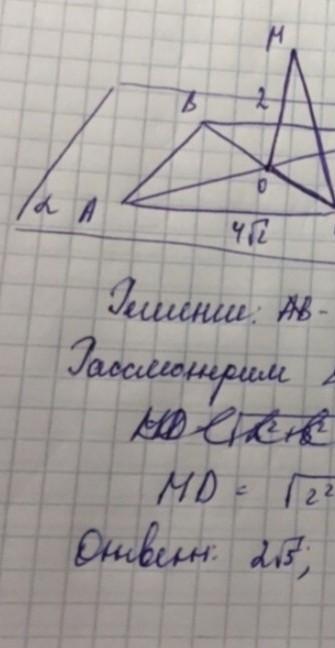 M
B 2
O
α A
4√2
Решение: AB -
Рассмотрим
MD = √2²
Ответ: 2√5;